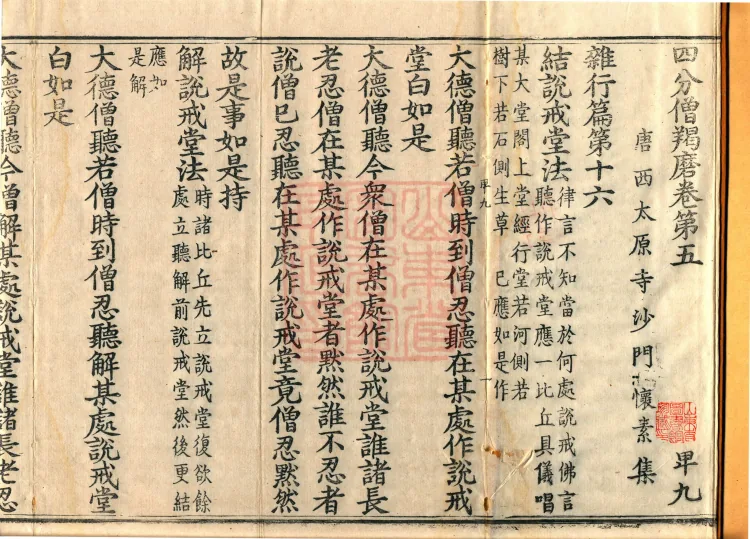 四分僧羯磨卷第五 卑九
唐西太原寺沙門懷素集
雜行篇第十六
結說戒堂法律言不知當於何處說戒佛言
聽作說戒堂應一比丘具儀唱
某大堂閣上堂經行堂若河側若
樹下若石側生草 已應如是作
大德僧聽若僧時到僧忍聽在某處作說戒
堂白如是
大德僧聽今眾僧在某處作說戒堂誰諸長
老忍僧在某處作說戒堂者默然誰不忍者
說僧已忍聽在某處作說戒堂竟僧忍默然
故是事如是持
解說戒堂法時諸比丘先立說戒堂復欲餘
處立聽解前說戒堂然後更結
應如
是解
大德僧聽若僧時到僧忍聽解某處說戒堂
白如是
大德僧聽今僧解某處說戒堂誰諸長老忍